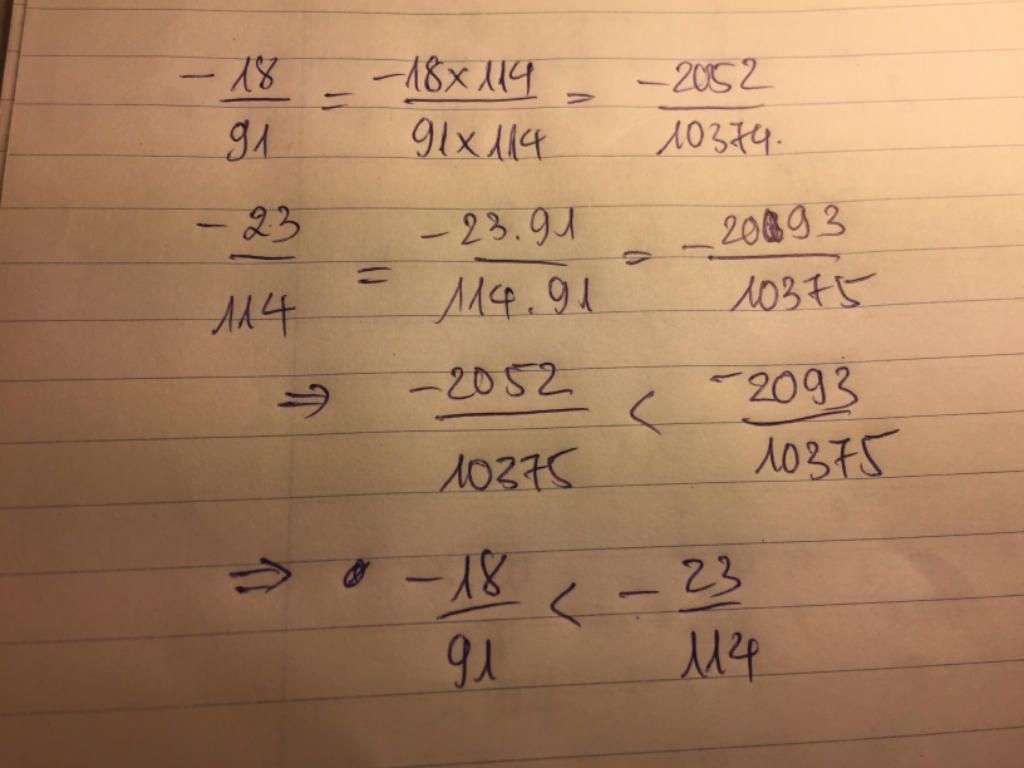 -18/91 = -18×114/91×114 = -2052/10374.
-23/114 = -23.91/114.91 = -2093/10375
⇒ -2052/10375 < -2093/10375
⇒ -18/91 < -23/114